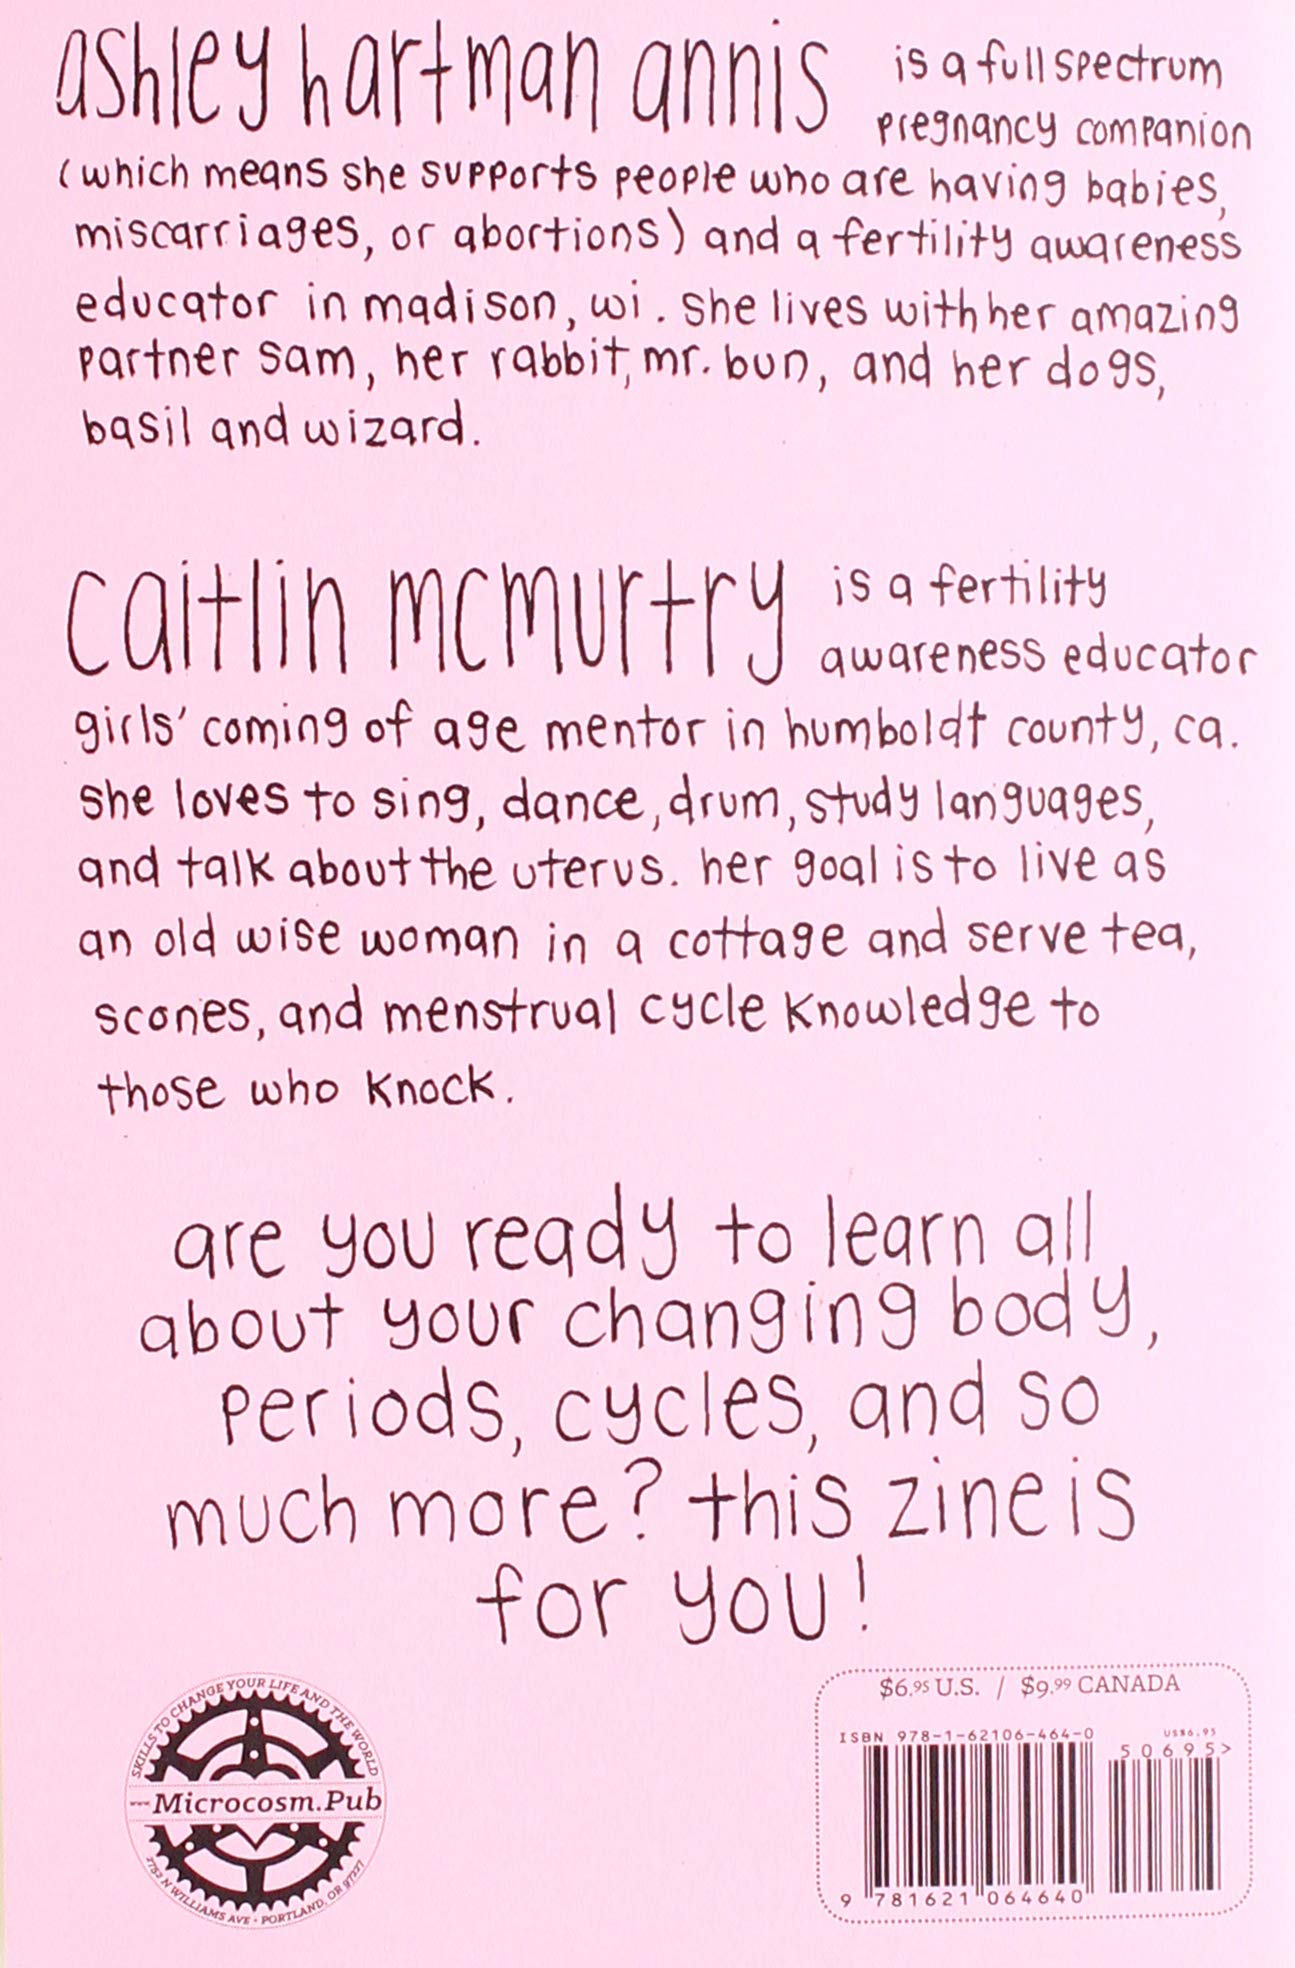 ashley hartman annis is a full spectrum
pregnancy companion
(which means she supports people who are having babies,
miscarriages, or abortions) and a fertility awareness
educator in madison, wi. she lives with her amazing
partner sam, her rabbit, mr. bun, and her dogs,
basil and wizard.
caitlin mcmurtry is a fertility
awareness educator
girls' coming of age mentor in humboldt county, ca.
she loves to sing, dance, drum, study languages,
and talk about the uterus. her goal is to live as
an old wise woman in a cottage and serve tea,
scones, and menstrual cycle knowledge to
those who knock.
are you ready to learn all
about your changing body,
periods, cycles, and so
much more? this zine is
for you!
SKILLS TO CHANGE YOUR LIFE AND THE WORLD
www.Microcosm.Pub
2752 N WILLIAMS AVE · PORTLAND, OR 97227
$6.95 U.S. / $9.99 CANADA
ISBN 978-1-62106-464-0
US$6.95
50695>
9 781621 064640